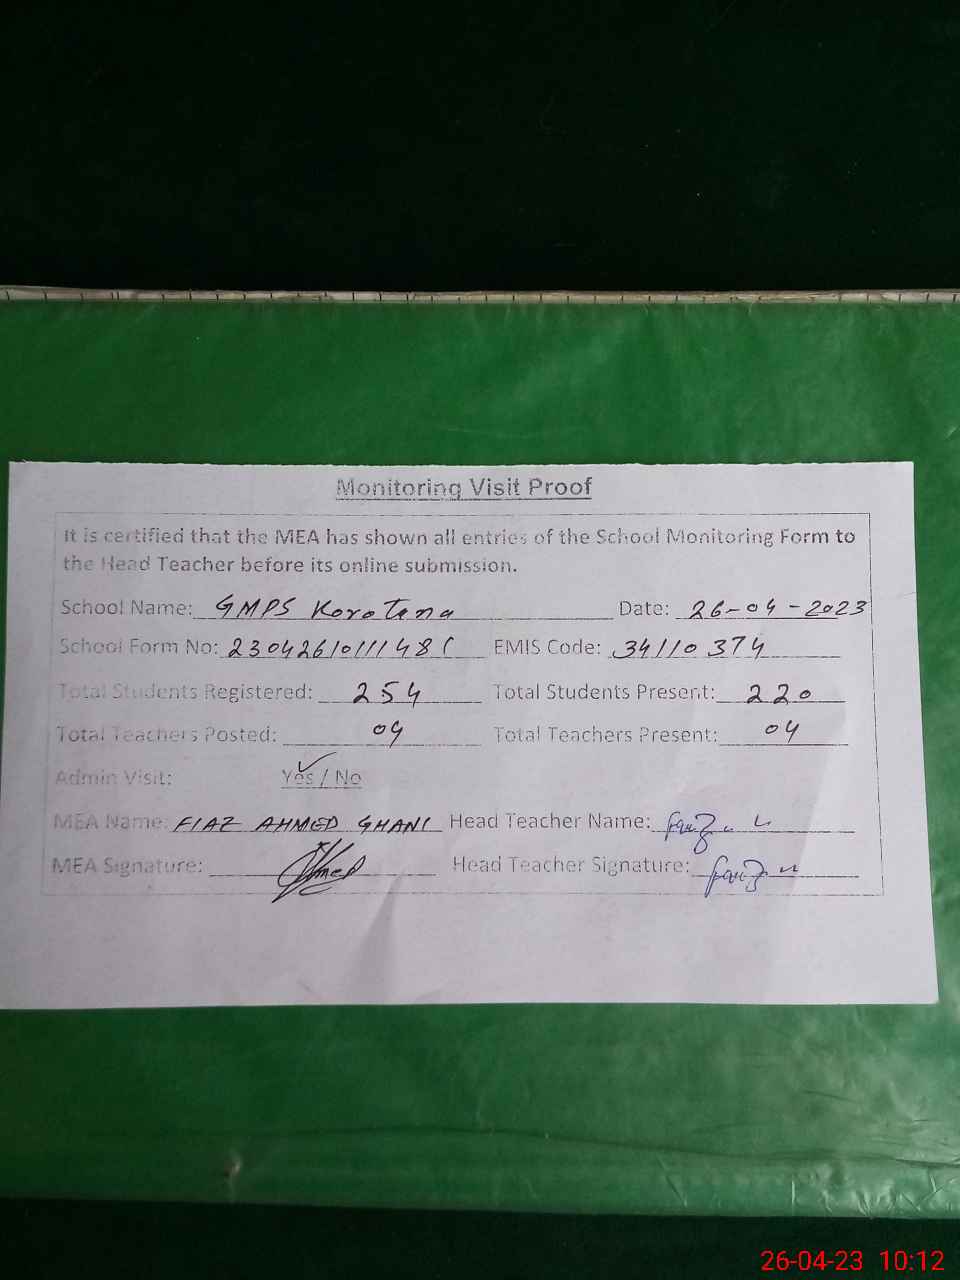 Monitoring Visit Proof
It is certified that the MEA has shown all entries of the School Monitoring Form to
the Head Teacher before its online submission.
School Name: GMPS Korotana Date: 26-04-2023
School Form No: EMIS Code: 34110374
Total Students Registered: 254 Total Students Present: 220
Total Teachers Posted: 04 Total Teachers Present: 04
Admin Visit: Yes / No
MEA Name: FIAZ AHMED GHANI Head Teacher Name:
MEA Signature: Head Teacher Signature:
26-04-23 10:12